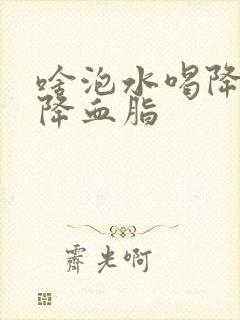 啥泡水喝降
降血脂
霁光啊